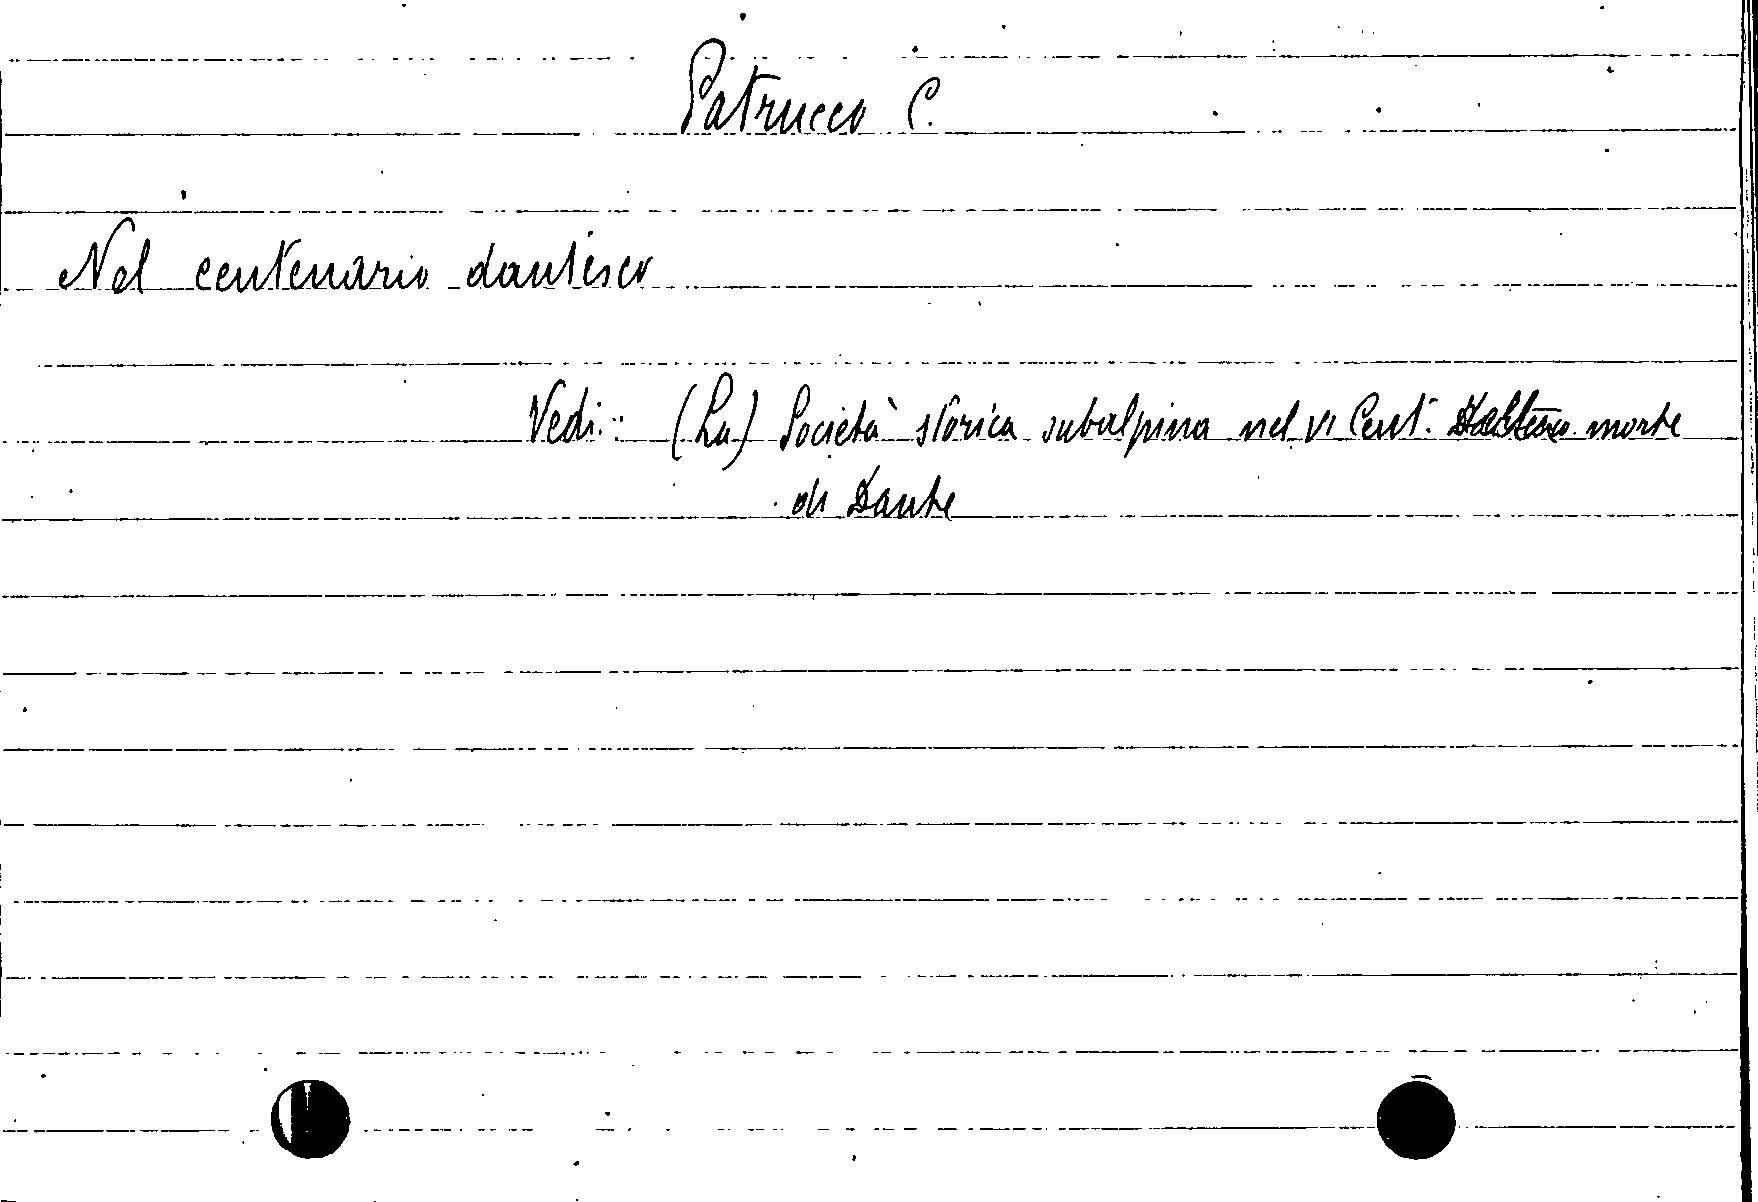 Patrucco C.
Nel centenario dantesco
Vedi: (La) Società storica subalpina nel VI Cent. morte
di Dante